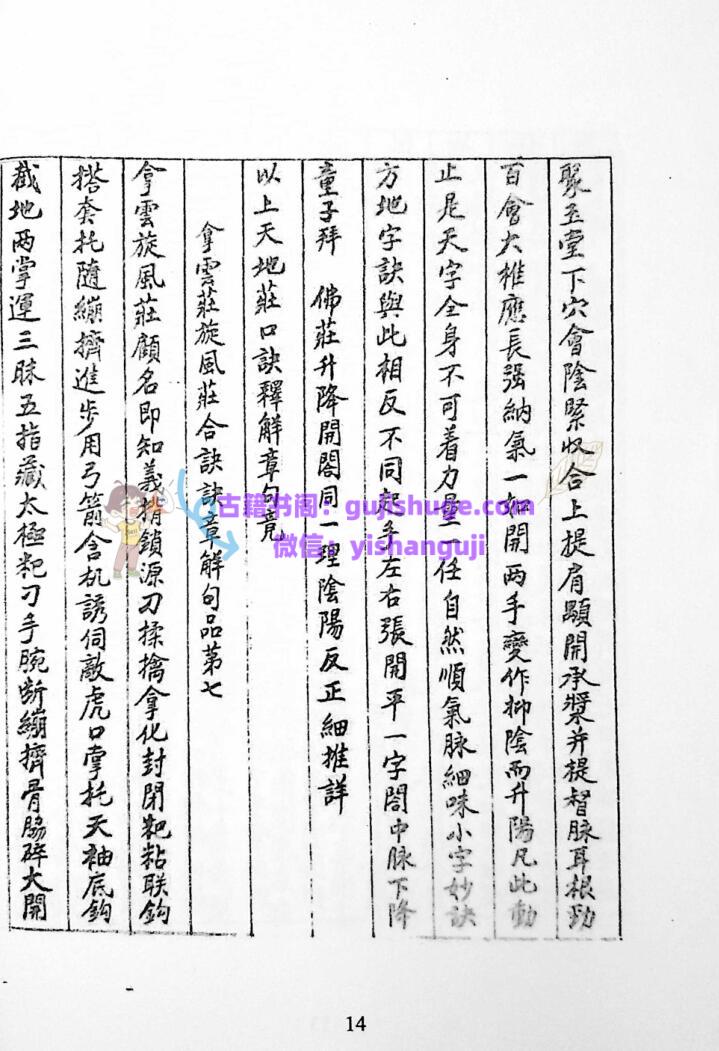 聚玉堂下穴會陰緊收合上提肩顒開承漿并提督脉耳根勁
百會大椎應長强納氣一如開兩手變作抑陰而升陽凡此動
止是天字全身不可着力量一任自然順氣脉細味小字妙訣
方地字訣與此相反不同起手左右張開平一字閤中脉下降
童子拜 佛莊升降開閤同一理陰陽反正細推詳
以上天地莊口訣釋解章句竟
拿雲莊旋風莊合訣訣章解句品第七
拿雲旋風莊顧名即知義捎鎖源刁揉擒拿化封閉粑粘联鈎
搭套托隨繃擠進步用弓箭含机誘伺敵虎口掌托天袖底鈎
截地两掌運三昧五指藏太極粑刁手腕断繃擠骨脇碎大開
古籍书阁：gujishuge.com
微信：yishanguji
14